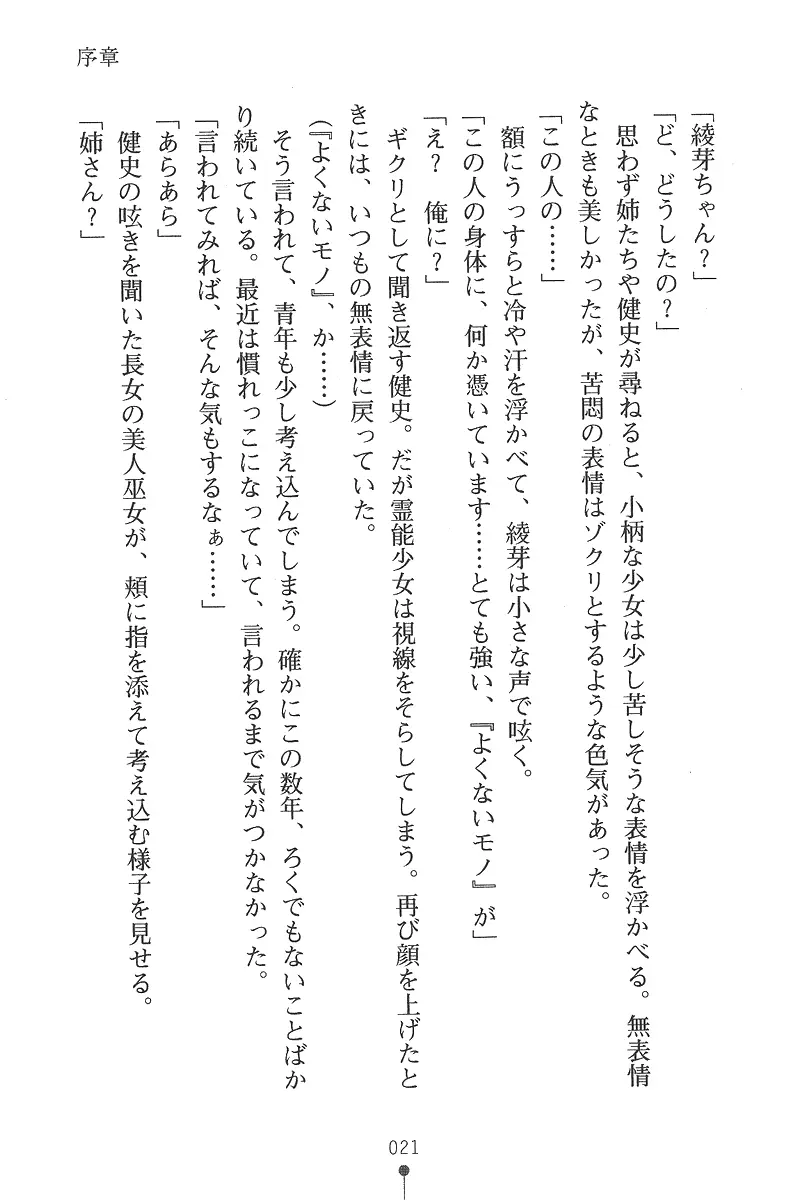 序章
「綾芽ちゃん？」
「ど、どうしたの？」
思わず姉たちや健史が尋ねると、小柄な少女は少し苦しそうな表情を浮かべる。無表情
なときも美しかったが、苦悶の表情はゾクリとするような色気があった。
「この人の……」
額にうっすらと冷や汗を浮かべて、綾芽は小さな声で呟く。
「この人の身体に、何か憑いています……とても強い、『よくないモノ』が」
「え？　俺に？」
ギクリとして聞き返す健史。だが霊能少女は視線をそらしてしまう。再び顔を上げたと
きには、いつもの無表情に戻っていた。
（『よくないモノ』、か……）
そう言われて、青年も少し考え込んでしまう。確かにこの数年、ろくでもないことばか
り続いている。最近は慣れっこになっていて、言われるまで気がつかなかった。
「言われてみれば、そんな気もするなぁ……」
「あらあら」
健史の呟きを聞いた長女の美人巫女が、頬に指を添えて考え込む様子を見せる。
「姉さん？」
021